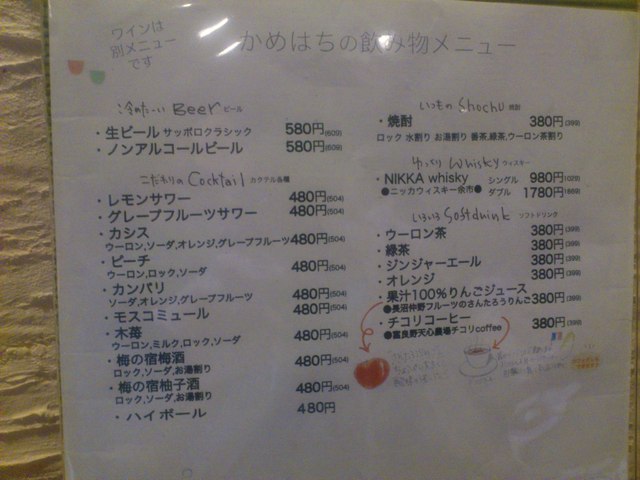 ワインは
別メニュー
です
かめはちの飲み物メニュー
冷めた〜い Beer ビール
・生ビール サッポロクラシック 580円(609)
・ノンアルコールビール 580円(609)
こだわりの Cocktail カクテル各種
・レモンサワー 480円(504)
・グレープフルーツサワー 480円(504)
・カシス
ウーロン,ソーダ,オレンジ,グレープフルーツ 480円(504)
・ピーチ
ウーロン,ロック,ソーダ 480円(504)
・カンパリ
ソーダ,オレンジ,グレープフルーツ 480円(504)
・モスコミュール 480円(504)
・木苺
ウーロン,ミルク,ロック,ソーダ 480円(504)
・梅の宿梅酒
ロック,ソーダ,お湯割り 480円(504)
・梅の宿柚子酒
ロック,ソーダ,お湯割り 480円(504)
・ハイボール 480円
いつもの Shochu 焼酎
・焼酎 380円(399)
ロック 水割り お湯割り 番茶,緑茶,ウーロン茶割り
ゆっくり Whisky ウィスキー
・NIKKA whisky シングル 980円(1029)
●ニッカウィスキー余市● ダブル 1780円(1869)
いろいろ Softdrink ソフトドリンク
・ウーロン茶 380円(399)
・緑茶 380円(399)
・ジンジャーエール 380円(399)
・オレンジ 380円(399)
・果汁100%りんごジュース
●長沼仲野フルーツのさんたろうりんご 380円(399)
・チコリコーヒー 380円(399)
●富良野天心農場チコリcoffee